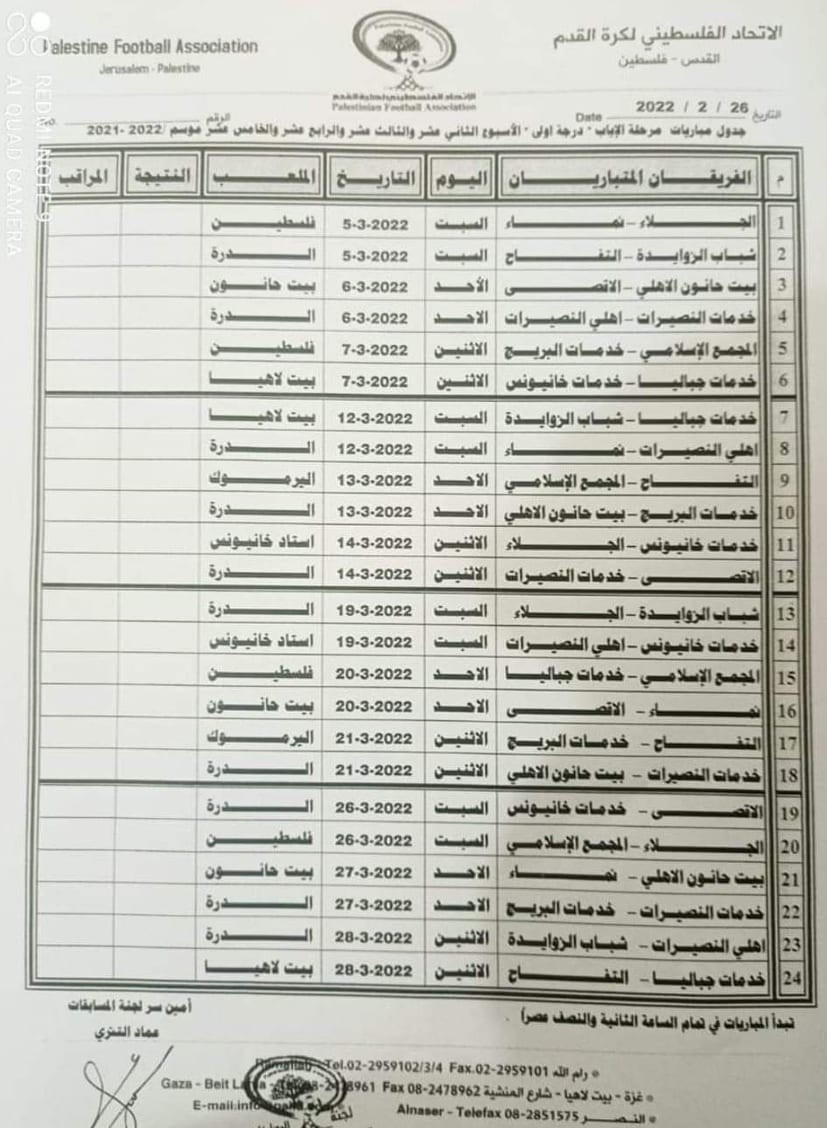 Palestine Football Association
Jerusalem - Palestine
الاتحاد الفلسطيني لكرة القدم
القدس - فلسطين
الإتحاد الفلسطيني لكرة القدم
Palestinian Football Association
التاريخ 2022 / 2 / 26 Date
الرقم No.
جدول مباريات مرحلة الإياب - درجة اولى - الأسبوع الثاني عشر والثالث عشر والرابع عشر والخامس عشر موسم /2022 -2021
م الفريقان المتباريان اليوم التاريخ الملعب النتيجة المراقب
1 الجلاء – نماء السبت 5-3-2022 فلسطين
2 شباب الزوايدة – التفاح السبت 5-3-2022 الدرة
3 بيت حانون الاهلي – الاقصى الأحد 6-3-2022 بيت حانون
4 خدمات النصيرات – اهلي النصيرات الاحد 6-3-2022 الدرة
5 المجمع الإسلامي – خدمات البريج الاثنين 7-3-2022 فلسطين
6 خدمات جباليا – خدمات خانيونس الاثنين 7-3-2022 بيت لاهيا
7 خدمات جباليا – شباب الزوايدة السبت 12-3-2022 بيت لاهيا
8 اهلي النصيرات – نماء السبت 12-3-2022 الدرة
9 التفاح – المجمع الإسلامي الاحد 13-3-2022 اليرموك
10 خدمات البريج – بيت حانون الاهلي الاحد 13-3-2022 الدرة
11 خدمات خانيونس – الجلاء الاثنين 14-3-2022 استاد خانيونس
12 الاقصى – خدمات النصيرات الاثنين 14-3-2022 الدرة
13 شباب الزوايدة – الجلاء السبت 19-3-2022 الدرة
14 خدمات خانيونس – اهلي النصيرات السبت 19-3-2022 استاد خانيونس
15 المجمع الإسلامي – خدمات جباليا الاحد 20-3-2022 فلسطين
16 نماء – الاقصى الاحد 20-3-2022 بيت حانون
17 التفاح – خدمات البريج الاثنين 21-3-2022 اليرموك
18 خدمات النصيرات – بيت حانون الاهلي الاثنين 21-3-2022 الدرة
19 الاقصى – خدمات خانيونس السبت 26-3-2022 الدرة
20 الجلاء – المجمع الإسلامي السبت 26-3-2022 فلسطين
21 بيت حانون الاهلي – نماء الاحد 27-3-2022 بيت حانون
22 خدمات النصيرات – خدمات البريج الاحد 27-3-2022 الدرة
23 اهلي النصيرات – شباب الزوايدة الاثنين 28-3-2022 الدرة
24 خدمات جباليا – التفاح الاثنين 28-3-2022 بيت لاهيا
تبدأ المباريات في تمام الساعة الثانية والنصف عصرا)
أمين سر لجنة المسابقات
عماد التتري
رام الله Ramallah - Tel.02-2959102/3/4 Fax.02-2959101
غزة - بيت لاهيا - شارع المنشية Gaza - Beit Fax 08-2478962
النصر Alnaser - Telefax 08-2851575
E-mail:
لجنة
REDMI NOTE 9
AI QUAD CAMERA